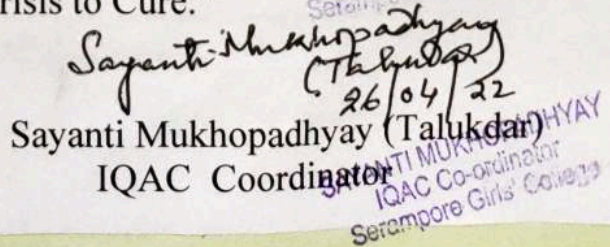 risis to Cure.
Sayanti Mukhopadhyay
(Talukdar)
26/04/22
Sayanti Mukhopadhyay (Talukdar)
IQAC Coordinator
SAYANTI MUKHOPADHYAY
IQAC Co-ordinator
Serampore Girls' College